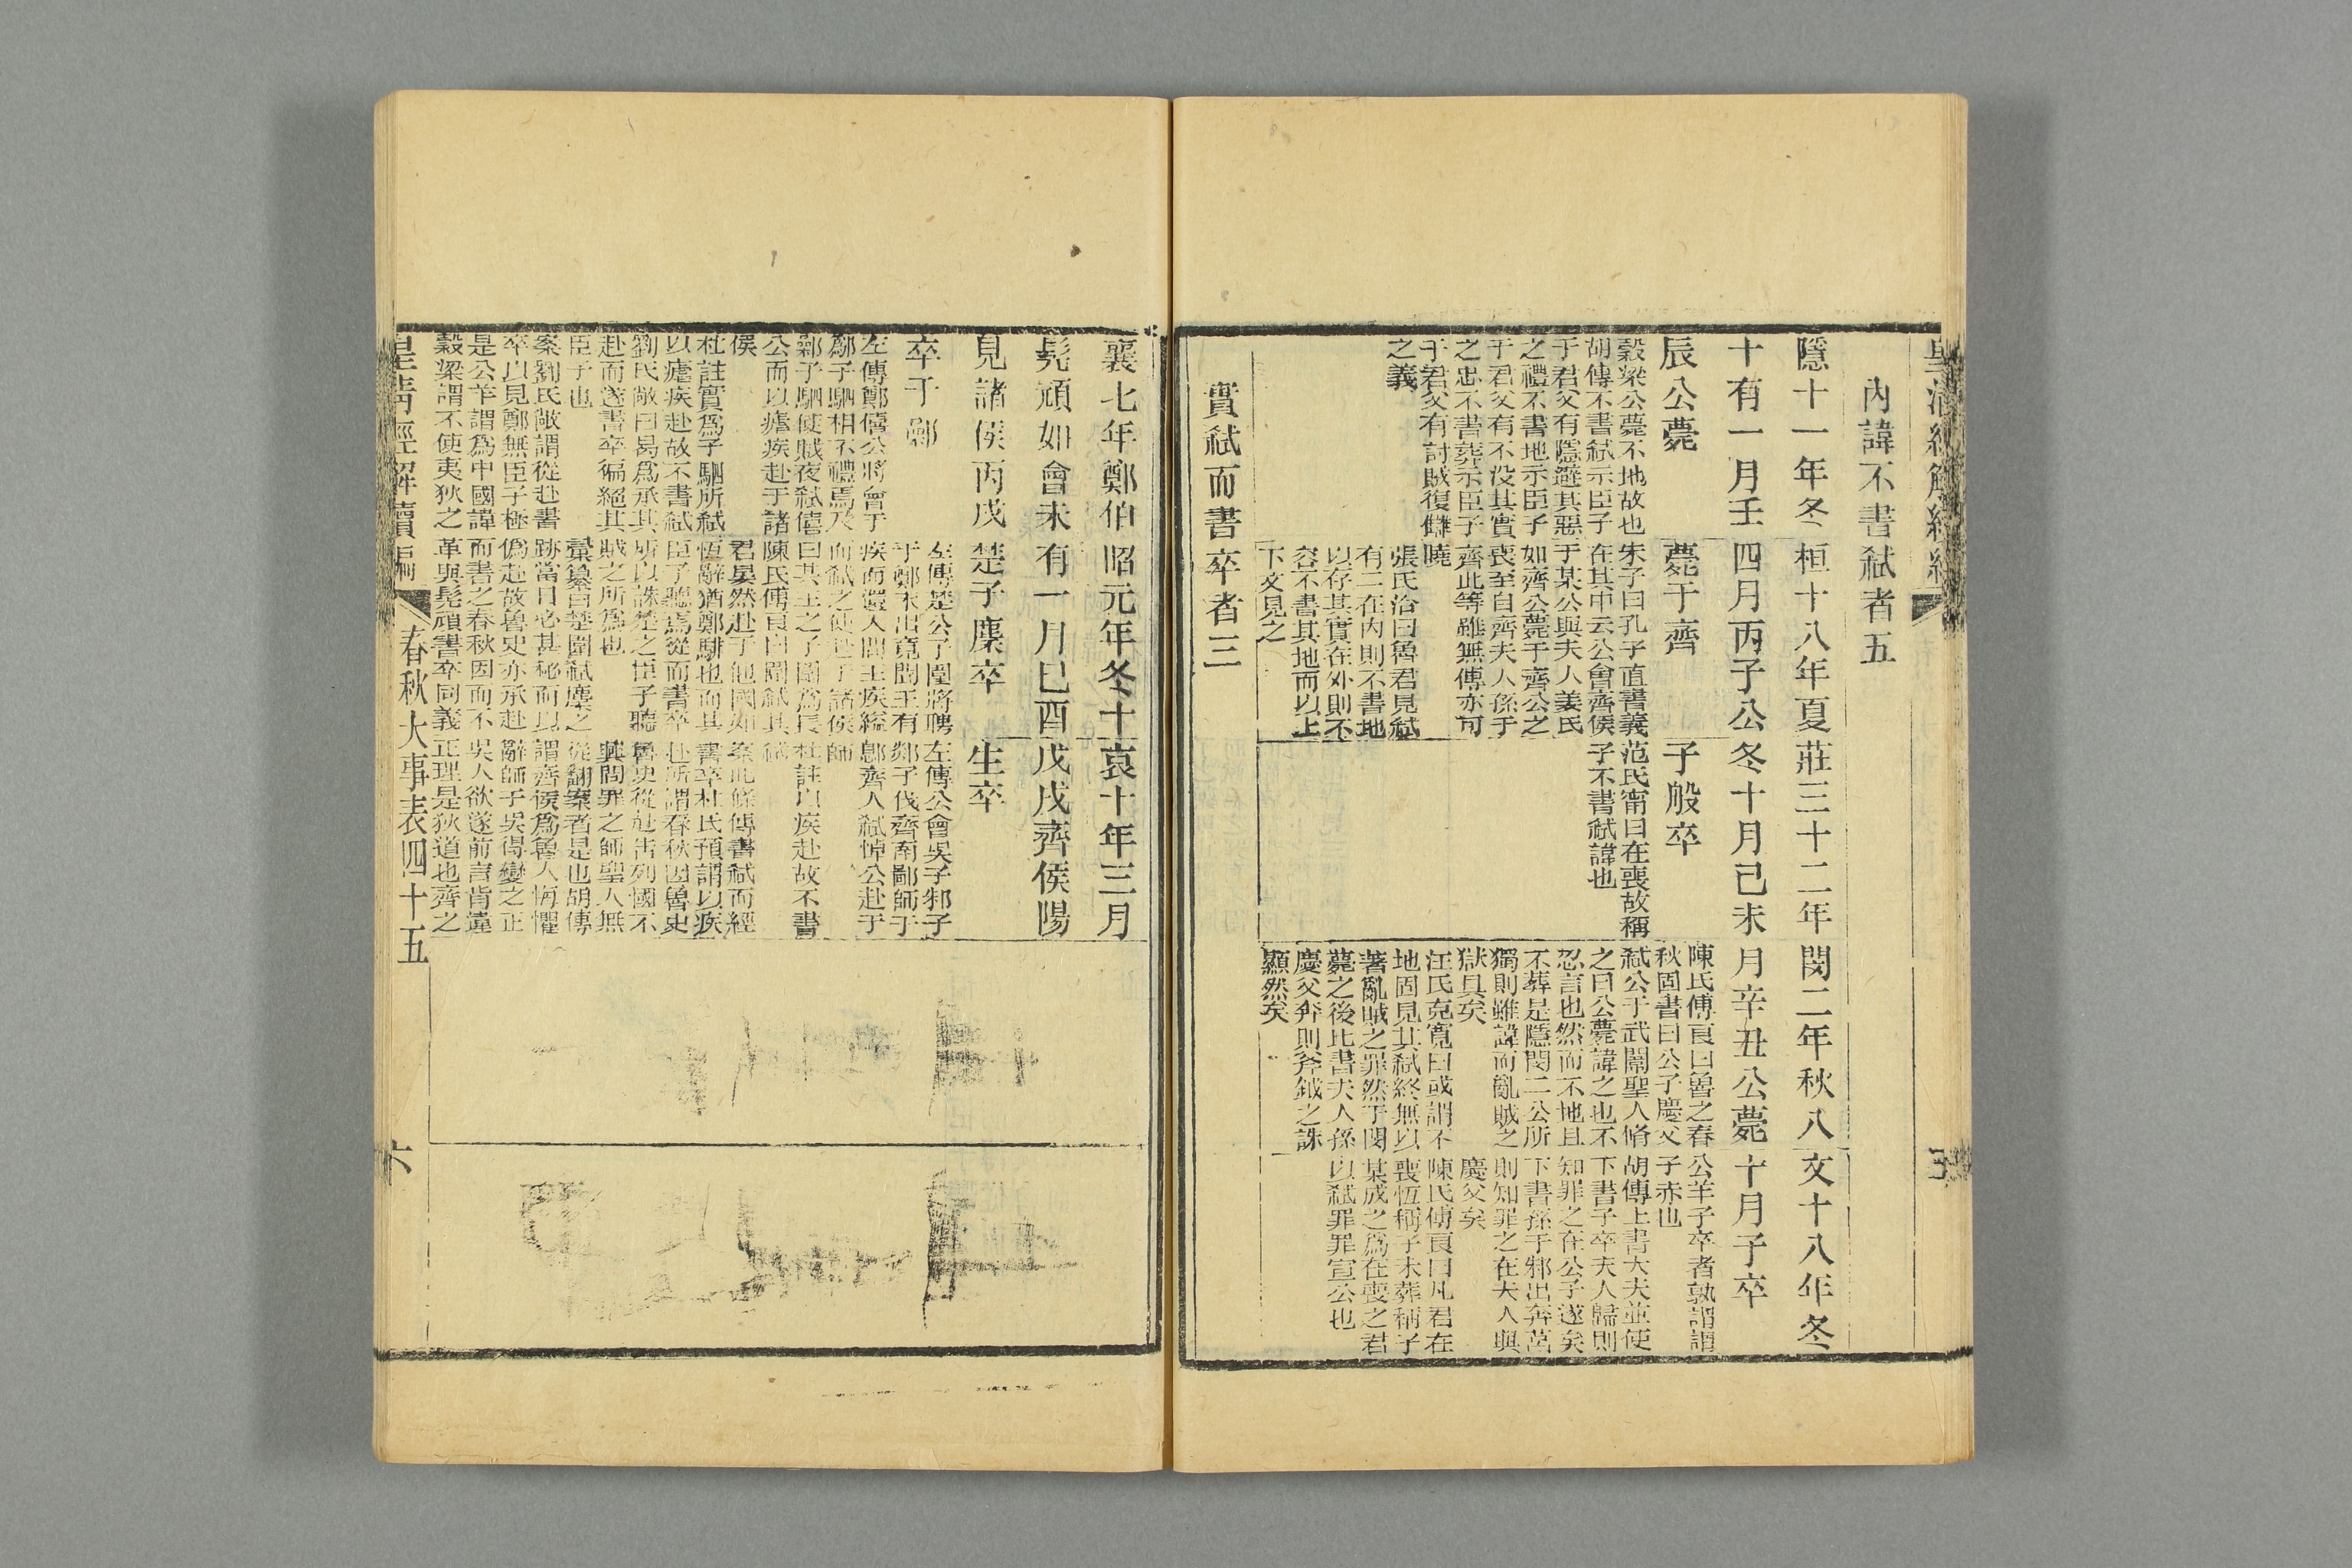 內諱不書弒者五
隱十一年冬
十有一月壬
辰公薨
穀梁公薨不地故也
胡傳不書弒示臣子
于君父有隱避其惡
之禮不書地示臣子
于君父有不没其實
之忠不書葬示臣子
于君父有討賊復讎
之義
桓十八年夏
四月丙子公
薨于齊
朱子曰孔子直書義
在其中云公會齊侯
于某公與夫人姜氏
如齊公薨于齊公之
喪至自齊夫人孫于
齊此等雖無傳亦可
曉
張氏洽曰魯君見弒
有二在內則不書地
以存其實在外則不
容不書其地而以上
下文見之
莊三十二年
冬十月己未
子般卒
范氏甯曰在喪故稱
子不書弒諱也
閔二年秋八
月辛丑公薨
陳氏傅良曰魯之春
秋固書曰公子慶父
弒公于武闈聖人脩
之曰公薨諱之也不
忍言也然而不地且
不葬是隱閔二公所
獨則雖諱而亂賊之
獄具矣
汪氏克寬曰或謂不
地固見其弒終無以
著亂賊之罪然于閔
薨之後比書夫人孫
慶父奔則斧鉞之誅
顯然矣
文十八年冬
十月子卒
公羊子卒者孰謂謂
子赤也
胡傳上書大夫並使
下書子卒夫人歸則
知罪之在公子遂矣
下書孫于邾出奔莒
則知罪之在夫人與
慶父矣
陳氏傅良曰凡君在
喪恆稱子未葬稱子
某成之爲在喪之君
以弒罪罪宣公也
實弒而書卒者三
襄七年鄭伯
髡頑如會未
見諸侯丙戌
卒于鄵
左傳鄭僖公將會于
鄬子駟相不禮焉及
鄵子駟使賊夜弒僖
公而以瘧疾赴于諸
侯
杜註實爲子駟所弒
以瘧疾赴故不書弒
劉氏敞曰曷爲承其
赴而遂書卒徧絕其
臣子也
案劉氏敞謂從赴書
卒以見鄭無臣子極
是公羊謂爲中國諱
穀梁謂不使夷狄之
昭元年冬十
有一月己酉
楚子麇卒
左傳楚公子圍將聘
于鄭未出竟聞王有
疾而還入問王疾縊
而弒之使赴于諸侯
曰共王之子圍爲長
陳氏傅良曰圍弒其
君晏然赴于他國如
恆辭猶鄭騑也而其
臣子聽焉從而書卒
所以誅楚之臣子聽
賊之所爲也
彙纂曰楚圍弒麇之
跡當日必甚秘而以
僞赴故魯史亦承赴
而書之春秋因而不
革與髡頑書卒同義
哀十年三月
戊戌齊侯陽
生卒
左傳公會吳子邾子
郯子伐齊南鄙師于
鄎齊人弒悼公赴于
師
杜註以疾赴故不書
弒
案此條傳書弒而經
書卒杜氏預謂以疾
赴所謂春秋因魯史
魯史從赴告列國不
興問罪之師聖人無
從翻案者是也胡傳
謂齊侯爲魯人悔懼
辭師于吳得變之正
吳人欲遂前言背違
正理是狄道也齊之
皇淸經解續編
春秋大事表四十五
六